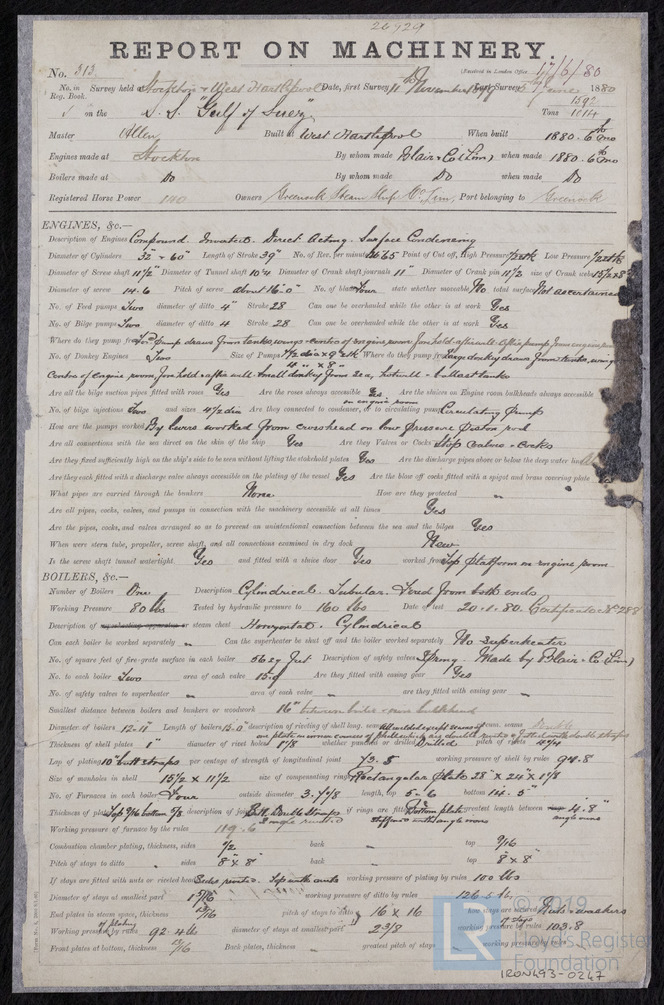 26929
REPORT ON MACHINERY.
No. 313 (Received in London Office 17/6/80
No. in Reg. Book. Survey held at Stockton & West Hartlepool Date, first Survey 11th November 1879 Last Survey June 1880
on the S. S. "Gulf of Suez" Tons 1392 1014
Master Allen Built at West Hartlepool When built 1880. 6th mo
Engines made at Stockton By whom made Blair & Co (Lim) when made 1880. 6th mo
Boilers made at Do By whom made Do when made Do
Registered Horse Power 140 Owners Greenock Steam Ship Co Lim, Port belonging to Greenock
ENGINES, &c.—
Description of Engines Compound. Inverted. Direct Acting. Surface Condensing
Diameter of Cylinders 32" & 60" Length of Stroke 39" No. of Rev. per minute 65 Point of Cut off, High Pressure Low Pressure
Diameter of Screw shaft 11 1/2" Diameter of Tunnel shaft 10 1/4 Diameter of Crank shaft journals 11" Diameter of Crank pin 11 1/2 size of Crank webs 15 1/2 x 8
Diameter of screw 14.6 Pitch of screw about 16.0 No. of blades Four state whether moveable No total surface Not ascertained
No. of Feed pumps Two diameter of ditto 4" Stroke 28 Can one be overhauled while the other is at work Yes
No. of Bilge pumps Two diameter of ditto 4 Stroke 28 Can one be overhauled while the other is at work Yes
Where do they pump from pump draws from tanks, wings & centre of engine room, fore hold & after well. After pump from engine room
No. of Donkey Engines Two Size of Pumps 7 1/2 dia x 9 4" x 8" Where do they pump from Large donkey draws from tanks, wings
Centre of engine room, fore hold & after well. Small donkey from sea, hotwell & ballast tanks
Are all the bilge suction pipes fitted with roses Yes Are the roses always accessible Yes Are the sluices on Engine room bulkheads always accessible in engine room
No. of bilge injections Two and sizes 4 1/2 dia Are they connected to condenser, or to circulating pump Circulating Pump
How are the pumps worked By levers worked from crosshead on low pressure piston rod
Are all connections with the sea direct on the skin of the ship Yes Are they Valves or Cocks Stop valves & cocks
Are they fixed sufficiently high on the ship's side to be seen without lifting the stokehold plates Yes Are the discharge pipes above or below the deep water line
Are they each fitted with a discharge valve always accessible on the plating of the vessel Yes Are the blow off cocks fitted with a spigot and brass covering plate
What pipes are carried through the bunkers None How are they protected "
Are all pipes, cocks, valves, and pumps in connection with the machinery accessible at all times Yes
Are the pipes, cocks, and valves arranged so as to prevent an unintentional connection between the sea and the bilges Yes
When were stern tube, propeller, screw shaft, and all connections examined in dry dock New
Is the screw shaft tunnel watertight Yes and fitted with a sluice door Yes worked from Top platform in engine room
BOILERS, &c.—
Number of Boilers One Description Cylindrical. Tubular. Fired from both ends
Working Pressure 80 lbs Tested by hydraulic pressure to 160 lbs Date of test 20.1.80. Certificate No 288
Description of steam chest Horizontal. Cylindrical
Can each boiler be worked separately " Can the superheater be shut off and the boiler worked separately No superheater
No. of square feet of fire-grate surface in each boiler Description of safety valves Spring. Made by Blair & Co (Lim)
No. to each boiler Two area of each valve 15.9 Are they fitted with easing gear Yes
No. of safety valves to superheater " area of each valve " are they fitted with easing gear "
Smallest distance between boilers and bunkers or woodwork 16" between boiler & iron bulkhead
Diameter of boilers 12-11" Length of boilers 15-0" description of riveting of shell long. seams circum. seams Double
Thickness of shell plates 1" diameter of rivet holes 1 1/8 whether punched or drilled Drilled pitch of rivets 4 1/4
Lap of plating 10" butt straps per centage of strength of longitudinal joint 73.5 working pressure of shell by rules 94.8
Size of manholes in shell 15 1/2 x 11 1/2 size of compensating rings Rectangular plate 28" x 24" x 1 1/8
No. of Furnaces in each boiler Four outside diameter 3. 7 7/8 length, top 5-6 bottom 14.5"
Thickness of plates Top 9/16 bottom 5/8 description of joint Butt. Double straps Single riveted if rings are fitted Bottom plate stiffened with angle irons greatest length between 4.8" angle irons
Working pressure of furnace by the rules 119.6
Combustion chamber plating, thickness, sides 1/2 back " top 9/16
Pitch of stays to ditto sides 8" x 8" back " top 8" x 8"
If stays are fitted with nuts or riveted heads Sides riveted. Top with nuts working pressure of plating by rules 100 lbs
Diameter of stays at smallest part 1 5/16 working pressure of ditto by rules 126.5 lbs
End plates in steam space, thickness 13/16 pitch of stays to ditto 16 x 16 how stays are secured Nuts & washers
Working pressure of plating by rules 92.4 lbs diameter of stays at smallest part 2 3/8 working pressure of stays by rules 103.8
Front plates at bottom, thickness 13/16 Back plates, thickness " greatest pitch of stays " working pressure by rules
© 2019
Lloyd's Register
Foundation
LR
IRON493-0247